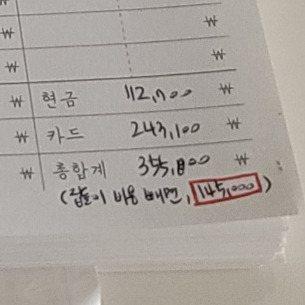 ₩ ₩
₩ ₩
₩ 현금 112,700 ₩
₩ 카드 243,100 ₩
₩ 총합계 355,800 ₩
(값들이 비용 빼면, 145,000)